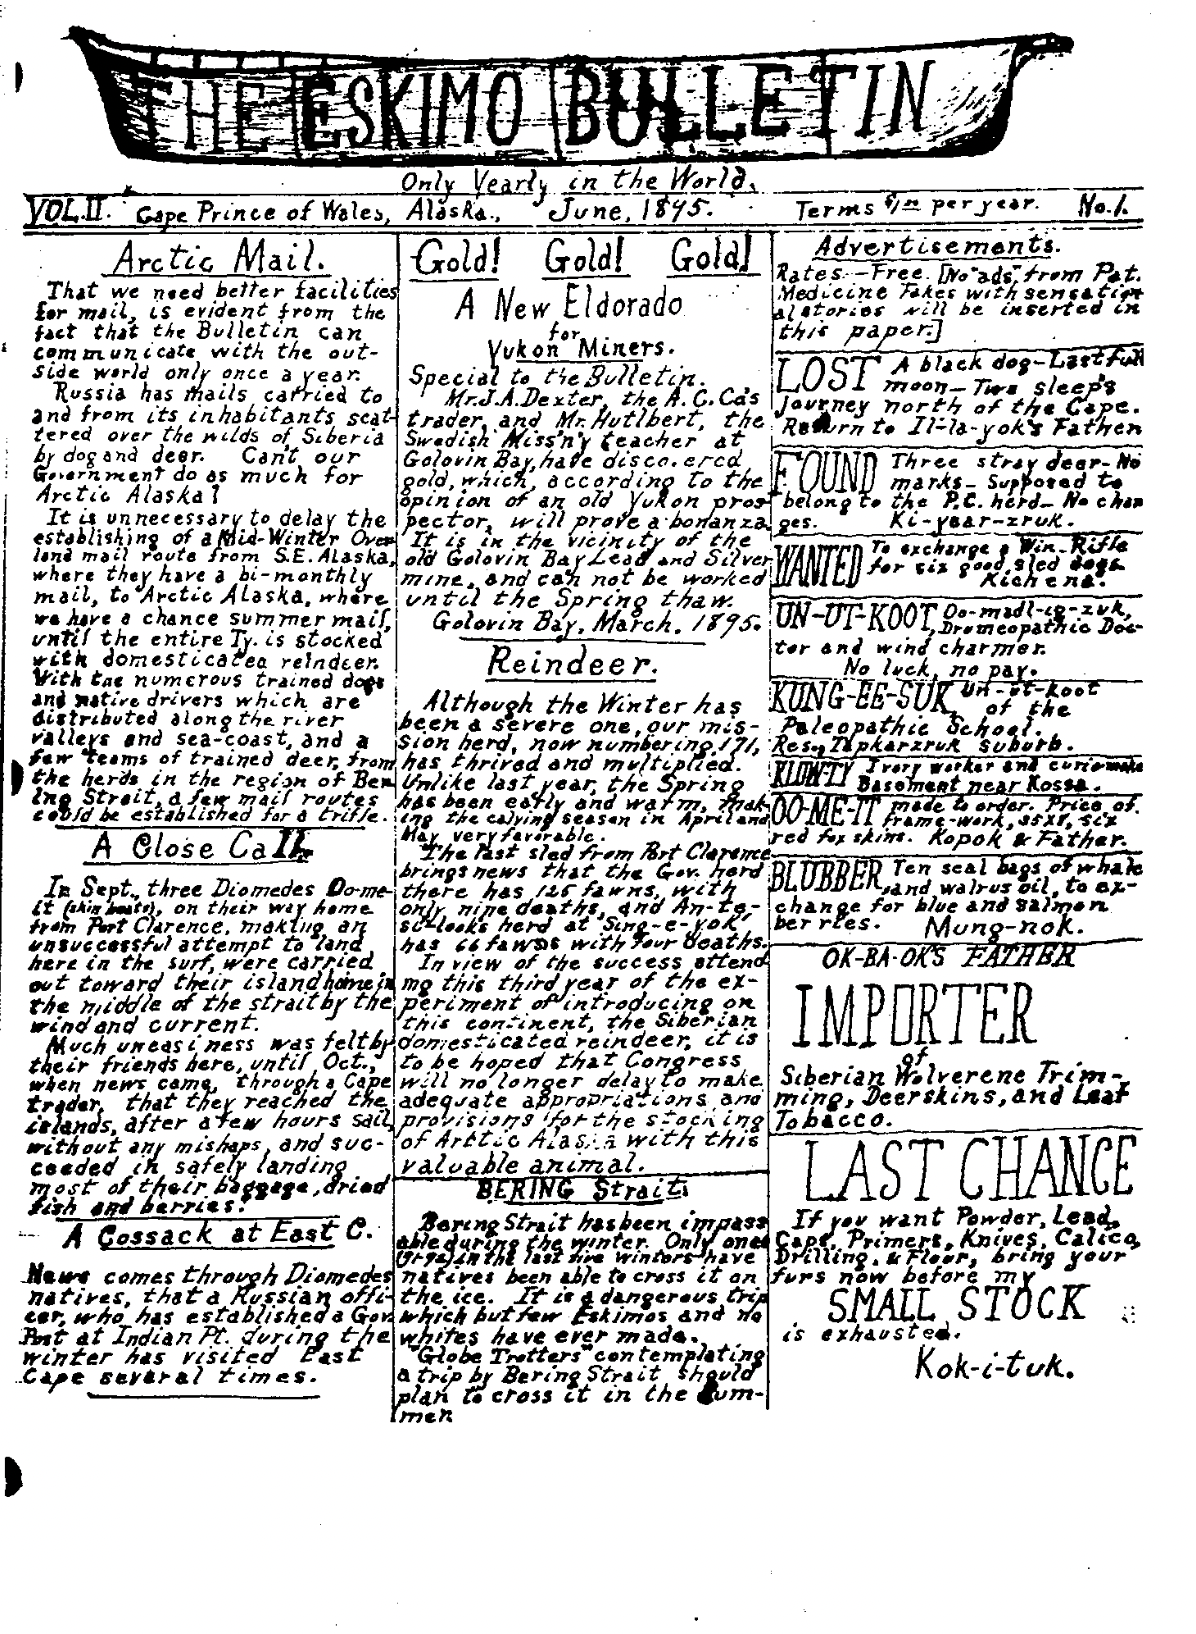 THE ESKIMO BULLETIN
Only Yearly in the World.
VOL.II. Cape Prince of Wales, Alaska., June, 1895. Terms per year. No.1.
Arctic Mail.
That we need better facilities
for mail, is evident from the
fact that the Bulletin can
communicate with the out-
side world only once a year.
Russia has mails carried to
and from its inhabitants scat-
tered over the wilds of Siberia
by dog and deer. Can't our
Government do as much for
Arctic Alaska?
It is unnecessary to delay the
establishing of a Mid-Winter Over
land mail route from S.E. Alaska,
where they have a bi-monthly
mail, to Arctic Alaska, where
we have a chance summer mail,
until the entire Ty. is stocked
with domesticated reindeer.
With the numerous trained dogs
and native drivers which are
distributed along the river
valleys and sea-coast, and a
few teams of trained deer, from
the herds in the region of Ber
ing Strait, a few mail routes
could be established for a trifle.
A Close Call.
In Sept., three Diomedes Oo-me-
it (skin boats), on their way home
from Port Clarence, making an
unsuccessful attempt to land
here in the surf, were carried
out toward their island home in
the middle of the strait by the
wind and current.
Much uneasiness was felt by
their friends here, until Oct.,
when news came, through a Cape
trader, that they reached the
islands, after a few hours sail,
without any mishaps, and suc-
ceeded in safely landing
most of their baggage, dried
fish and berries.
A Cossack at East C.
News comes through Diomedes
natives, that a Russian offi-
cer, who has established a Gov.
Post at Indian Pt. during the
winter has visited East
Cape several times.
Gold! Gold! Gold!
A New Eldorado
for
Yukon Miners.
Special to the Bulletin.
Mr. J.A. Dexter, the A.C. Co's
trader, and Mr. Hutlbert, the
Swedish Miss'n'y teacher at
Golovin Bay, have discovered
gold, which, according to the
opinion of an old Yukon pros-
pector, will prove a bonanza.
It is in the vicinity of the
old Golovin Bay Lead and Silver
mine, and can not be worked
until the Spring thaw.
Golovin Bay, March, 1895.
Reindeer.
Although the Winter has
been a severe one, our mis-
sion herd, now numbering 171,
has thrived and multiplied.
Unlike last year, the Spring
has been early and warm, mak-
ing the calving season in April and
May very favorable.
The last sled from Port Clarence
brings news that the Gov. herd
there has 125 fawns, with
only nine deaths, and An-te-
sc-looks herd at Sing-e-yok,
has 66 fawns with four deaths.
In view of the success attend
ing this third year of the ex-
periment of introducing on
this continent, the Siberian
domesticated reindeer, it is
to be hoped that Congress
will no longer delay to make
adequate appropriations and
provisions for the stocking
of Arctic Alaska with this
valuable animal.
BERING Strait
Bering Strait has been impass
able during the winter. Only once
in the last five winters have
natives been able to cross it on
the ice. It is a dangerous trip
which but few Eskimos and no
whites have ever made.
"Globe Trotters" contemplating
a trip by Bering Strait should
plan to cross it in the Sum-
mer
Advertisements.
Rates.-Free. [No "ads", from Pat.
Medicine Fakes with sensation
al stories will be inserted in
this paper.]
LOST A black dog-Last full
moon-Two sleep's
journey north of the Cape.
Return to Il-la-yok's Father
FOUND Three stray deer-No
marks-Supposed to
belong to the P.C. herd-No char
ges. Ki-year-zruk.
WANTED To exchange a Win. Rifle
for six good sled dogs.
Kichena.
UN-UT-KOOT, Oo-madl-ig-zuk,
Dromeopathic Doc-
tor and wind charmer.
No luck, no pay.
KUNG-EE-SUK, Un-ut-koot
of the
Paleopathic School.
Res., Tapkarzruk suburb.
KLOWTY Ivory worker and curio make
Basement near Kossa.
OO-ME-IT made to order. Price of
frame-work, 35x8, six
red fox skins. Kopok & Father.
BLUBBER Ten seal bags of whale
and walrus oil, to ex-
change for blue and salmon
berries. Mung-nok.
OK-BA-OK'S FATHER
IMPORTER
of
Siberian Wolverene Trim-
ming, Deerskins, and Leaf
Tobacco.
LAST CHANCE
If you want Powder, Lead,
Caps, Primers, Knives, Calico,
Drilling, & Flour, bring your
furs now before my
SMALL STOCK
is exhausted.
Kok-i-tuk.